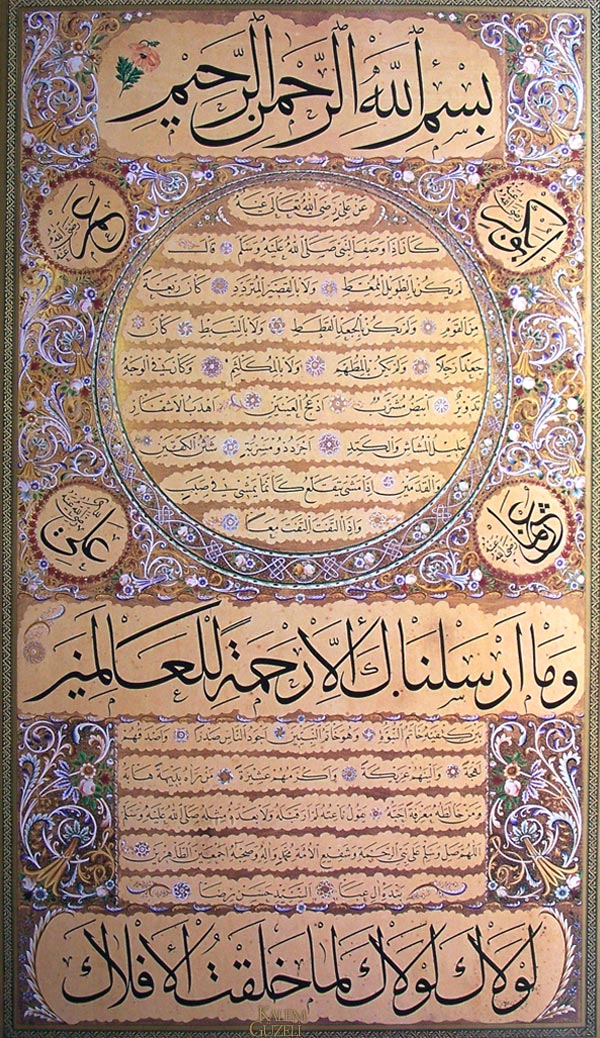 بسم الله الرحمن الرحيم
عن علي رضي الله تعالى عنه
كان اذا وصف النبي صلى الله عليه وسلم قال
لم يكن بالطويل الممغط ولا بالقصير المتردد كان ربعة
من القوم ولم يكن بالجعد القطط ولا بالسبط كان
جعدا رجلا ولم يكن بالمطهم ولا بالمكلثم وكان في الوجه
تدوير ابيض مشرب ادعج العينين اهدب الاشفار
جليل المشاش والكتد اجرد ذو مسربة شثن الكفين
والقدمين اذا مشى يتقلع كانما يمشي في صبب
واذا التفت التفت معا
ابوبكر رضي الله عنه
عمر رضي الله عنه
عثمان رضي الله عنه
علي رضي الله عنه
وما ارسلناك الا رحمة للعالمين
بين كتفيه خاتم النبوة وهو خاتم النبيين اجود الناس صدرا واصدقهم
لهجة والينهم عريكة واكرمهم عشيرة من رآه بديهة هابه
ومن خالطه معرفة احبه يقول ناعته لم ار قبله ولا بعده مثله صلى الله عليه وسلم
اللهم صل وسلم على نبي الرحمة وشفيع الامة محمد وآله وصحبه اجمعين الطاهرين
السيد حسن رضا
لولاك لولاك لما خلقت الافلاك
KALEM GÜZELİ